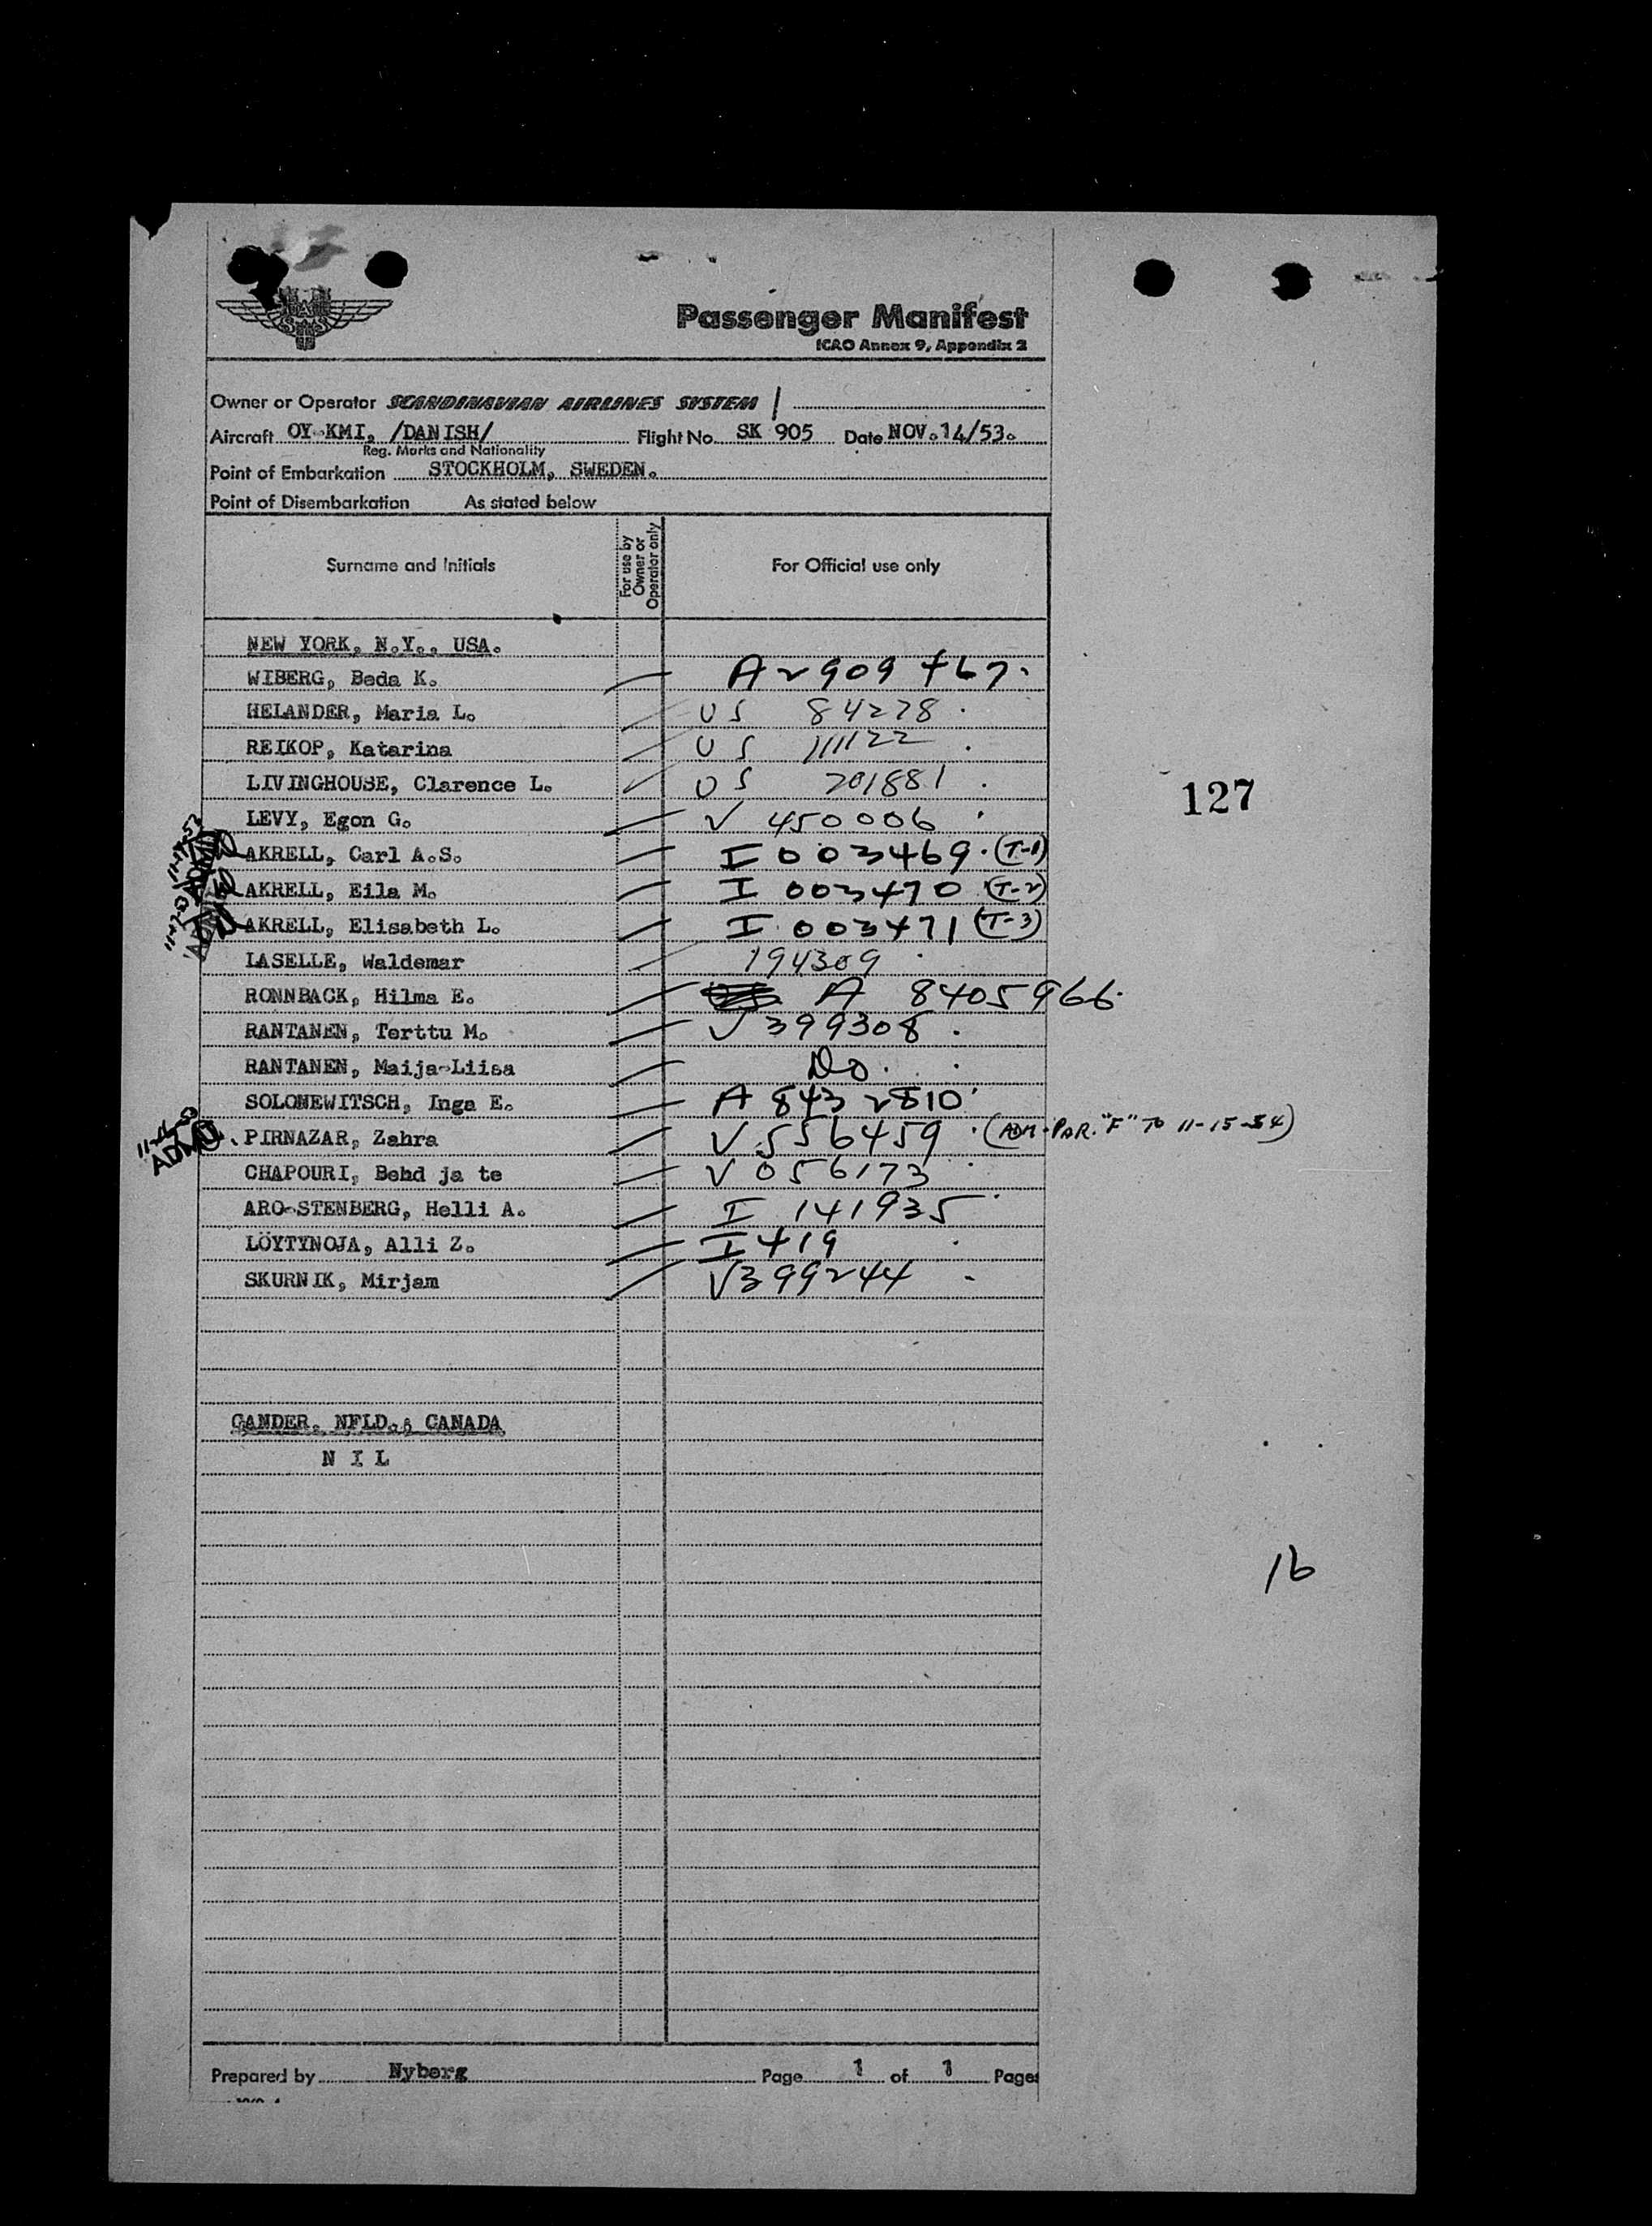 SAS
Passenger Manifest
ICAO Annex 9, Appendix 2
Owner or Operator SCANDINAVIAN AIRLINES SYSTEM
Aircraft OY-KMI, /DANISH/ Flight No. SK 905 Date NOV.14/53.
Reg. Marks and Nationality
Point of Embarkation STOCKHOLM, SWEDEN.
Point of Disembarkation As stated below
Surname and Initials For use by Owner or Operator only For Official use only
NEW YORK, N.Y., USA.
WIBERG, Beda K. A 2909 467.
HELANDER, Maria L. US 84278.
REIKOP, Katarina US 111122.
LIVINGHOUSE, Clarence L. US 201881.
127
LEVY, Egon G. V 450006.
AKRELL, Carl A.S. I 003469. (T-1)
AKRELL, Eila M. I 003470 (T-2)
AKRELL, Elisabeth L. I 003471 (T-3)
LASELLE, Waldemar 194309.
RONNBACK, Hilma E. A 8405966.
RANTANEN, Terttu M. V 399308.
RANTANEN, Maija-Liisa Do.
SOLONEWITSCH, Inga E. A 8432810.
PIRNAZAR, Zahra V 556459. (ADM. PAR. "F" TO 11-15-54)
CHAPOURI, Behd ja te V 056173
ARO-STENBERG, Helli A. I 141935.
LÖYTYNOJA, Alli Z. I 419.
SKURNIK, Mirjam V399244.
GANDER, NFLD., CANADA
N I L
16
Prepared by Nyberg Page 1 of 1 Pages